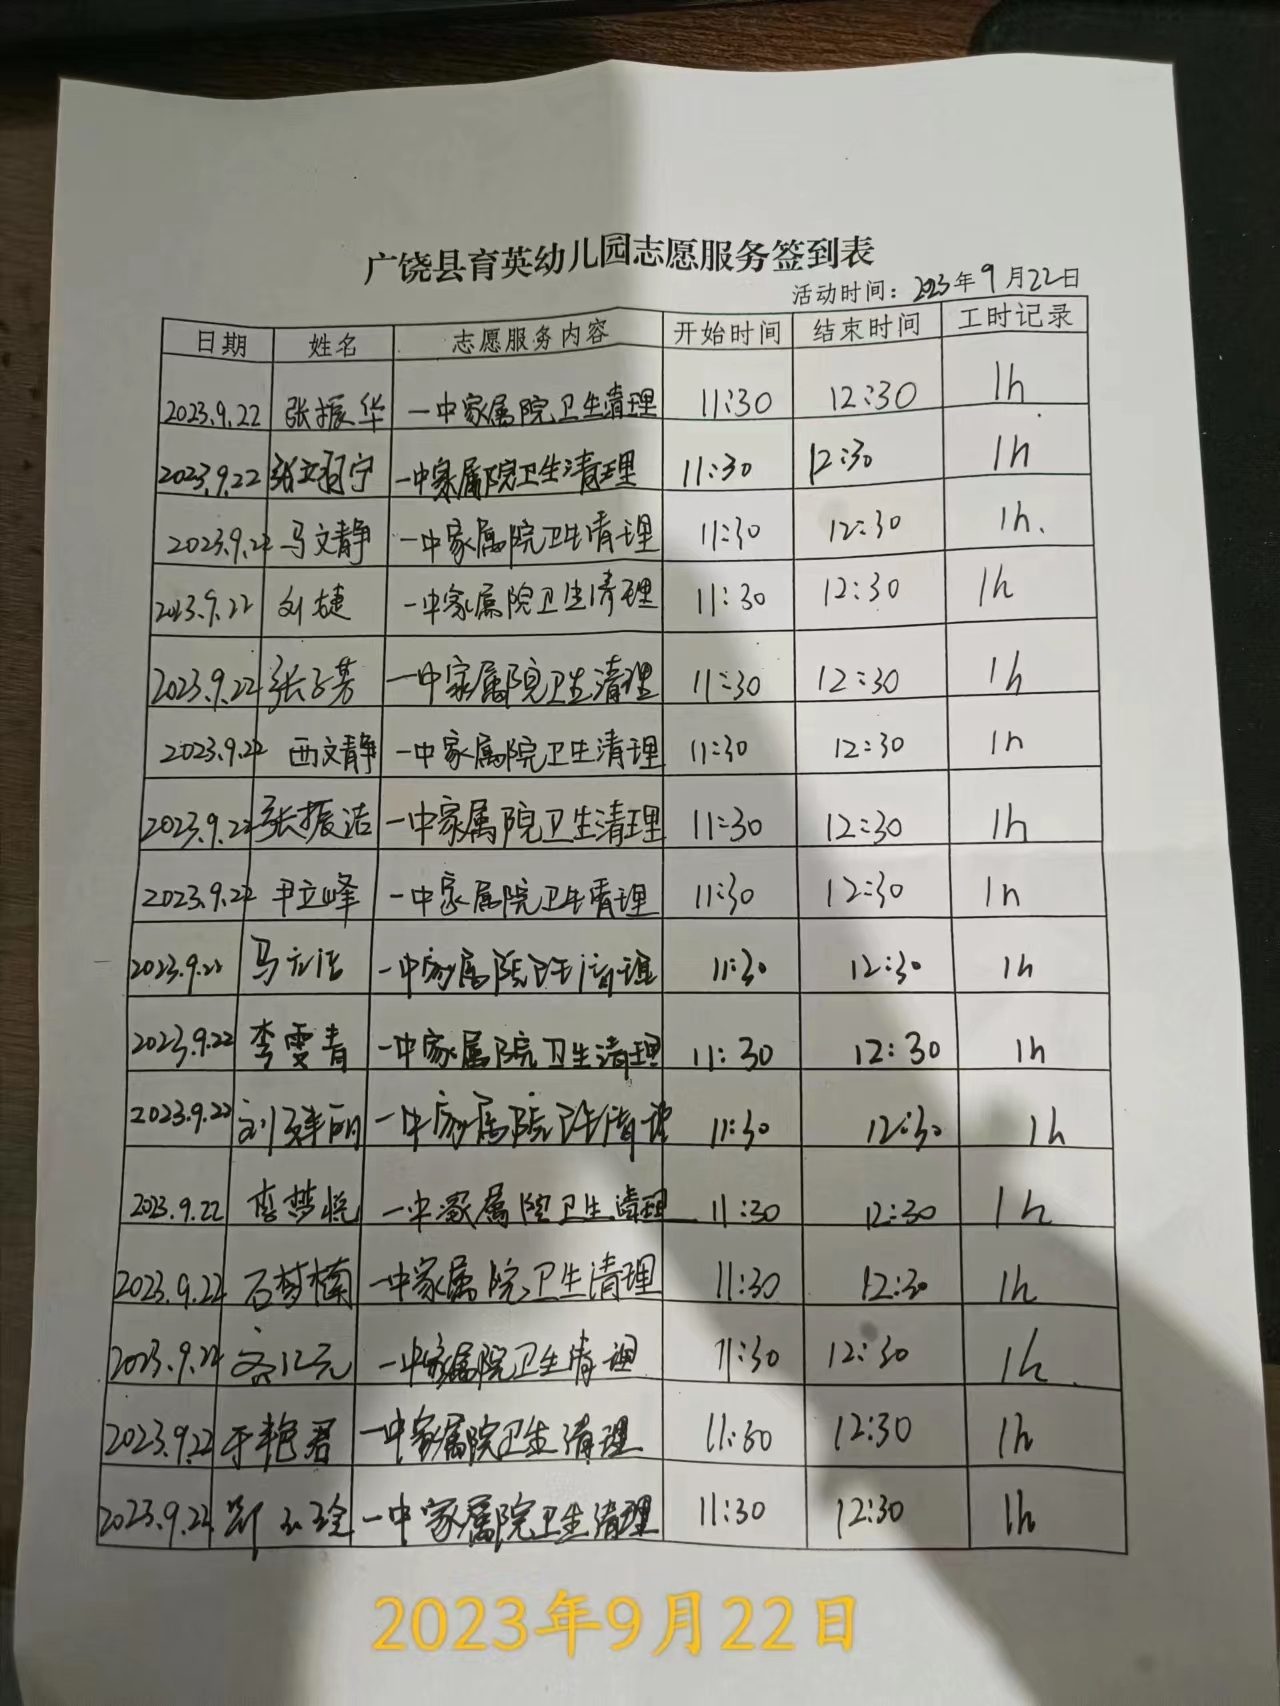 广饶县育英幼儿园志愿服务签到表
活动时间：2023年9月22日
日期 姓名 志愿服务内容 开始时间 结束时间 工时记录
2023.9.22 张振华 一中家属院卫生清理 11:30 12:30 1h
2023.9.22 一中家属院卫生清理 11:30 12:30 1h
2023.9.22 马文静 一中家属院卫生清理 11:30 12:30 1h.
2023.9.22 刘捷 一中家属院卫生清理 11:30 12:30 1h
2023.9.22 张子芳 一中家属院卫生清理 11:30 12:30 1h
2023.9.22 西文静 一中家属院卫生清理 11:30 12:30 1h
2023.9.22 张振洁 一中家属院卫生清理 11:30 12:30 1h
2023.9.22 尹立峰 一中家属院卫生清理 11:30 12:30 1h
2023.9.22 一中家属院卫生清理 11:30 12:30 1h
2023.9.22 李雯青 一中家属院卫生清理 11:30 12:30 1h
2023.9.22 一中家属院卫生清理 11:30 12:30 1h
2023.9.22 李梦悦 一中家属院卫生清理 11:30 12:30 1h
2023.9.22 石梦楠 一中家属院卫生清理 11:30 12:30 1h
2023.9.22 一中家属院卫生清理 11:30 12:30 1h
2023.9.22 于艳君 一中家属院卫生清理 11:30 12:30 1h
2023.9.22 一中家属院卫生清理 11:30 12:30 1h
2023年9月22日